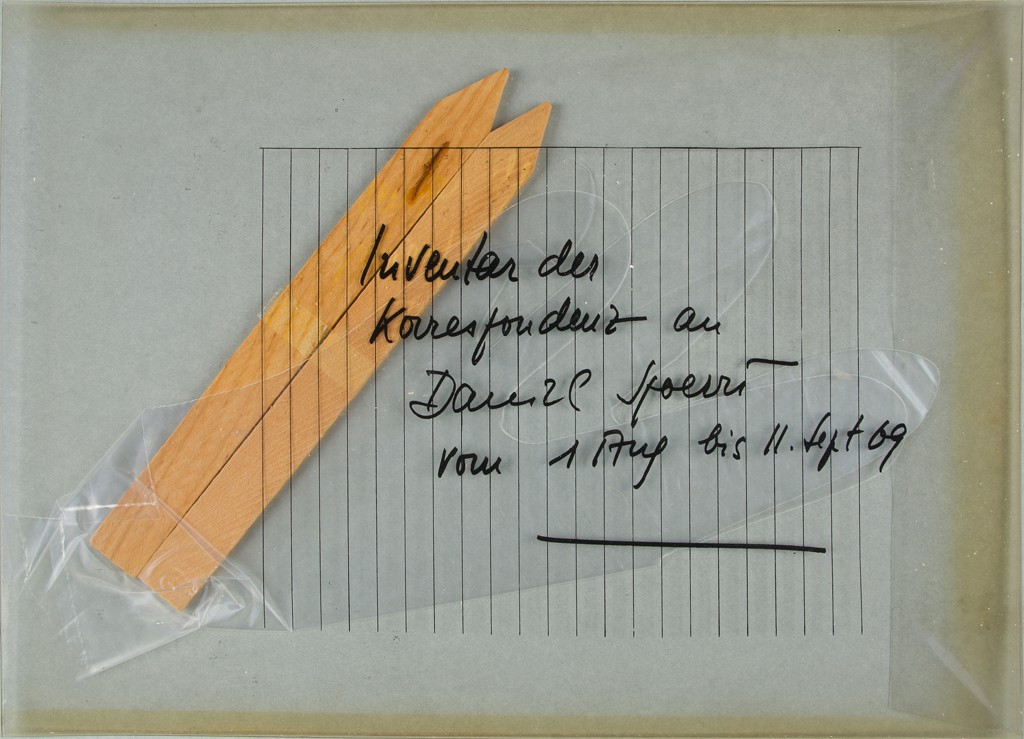 Inventar der
Korrespondenz an
Daniel Spoerri
vom 1 Aug bis 11. Sept 69